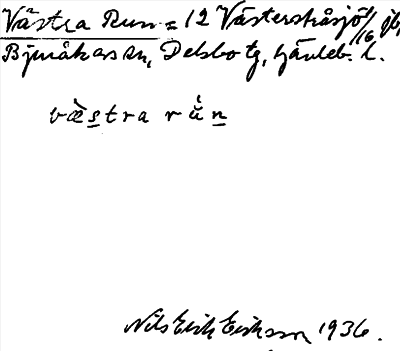 Västra Run = 12 Västerstråsjö 1/16 jb,
Bjuråkers sn, Delsbo tg, Gävleb. l.
væstra rŭ̀n
Nils Erik Erikson 1936.